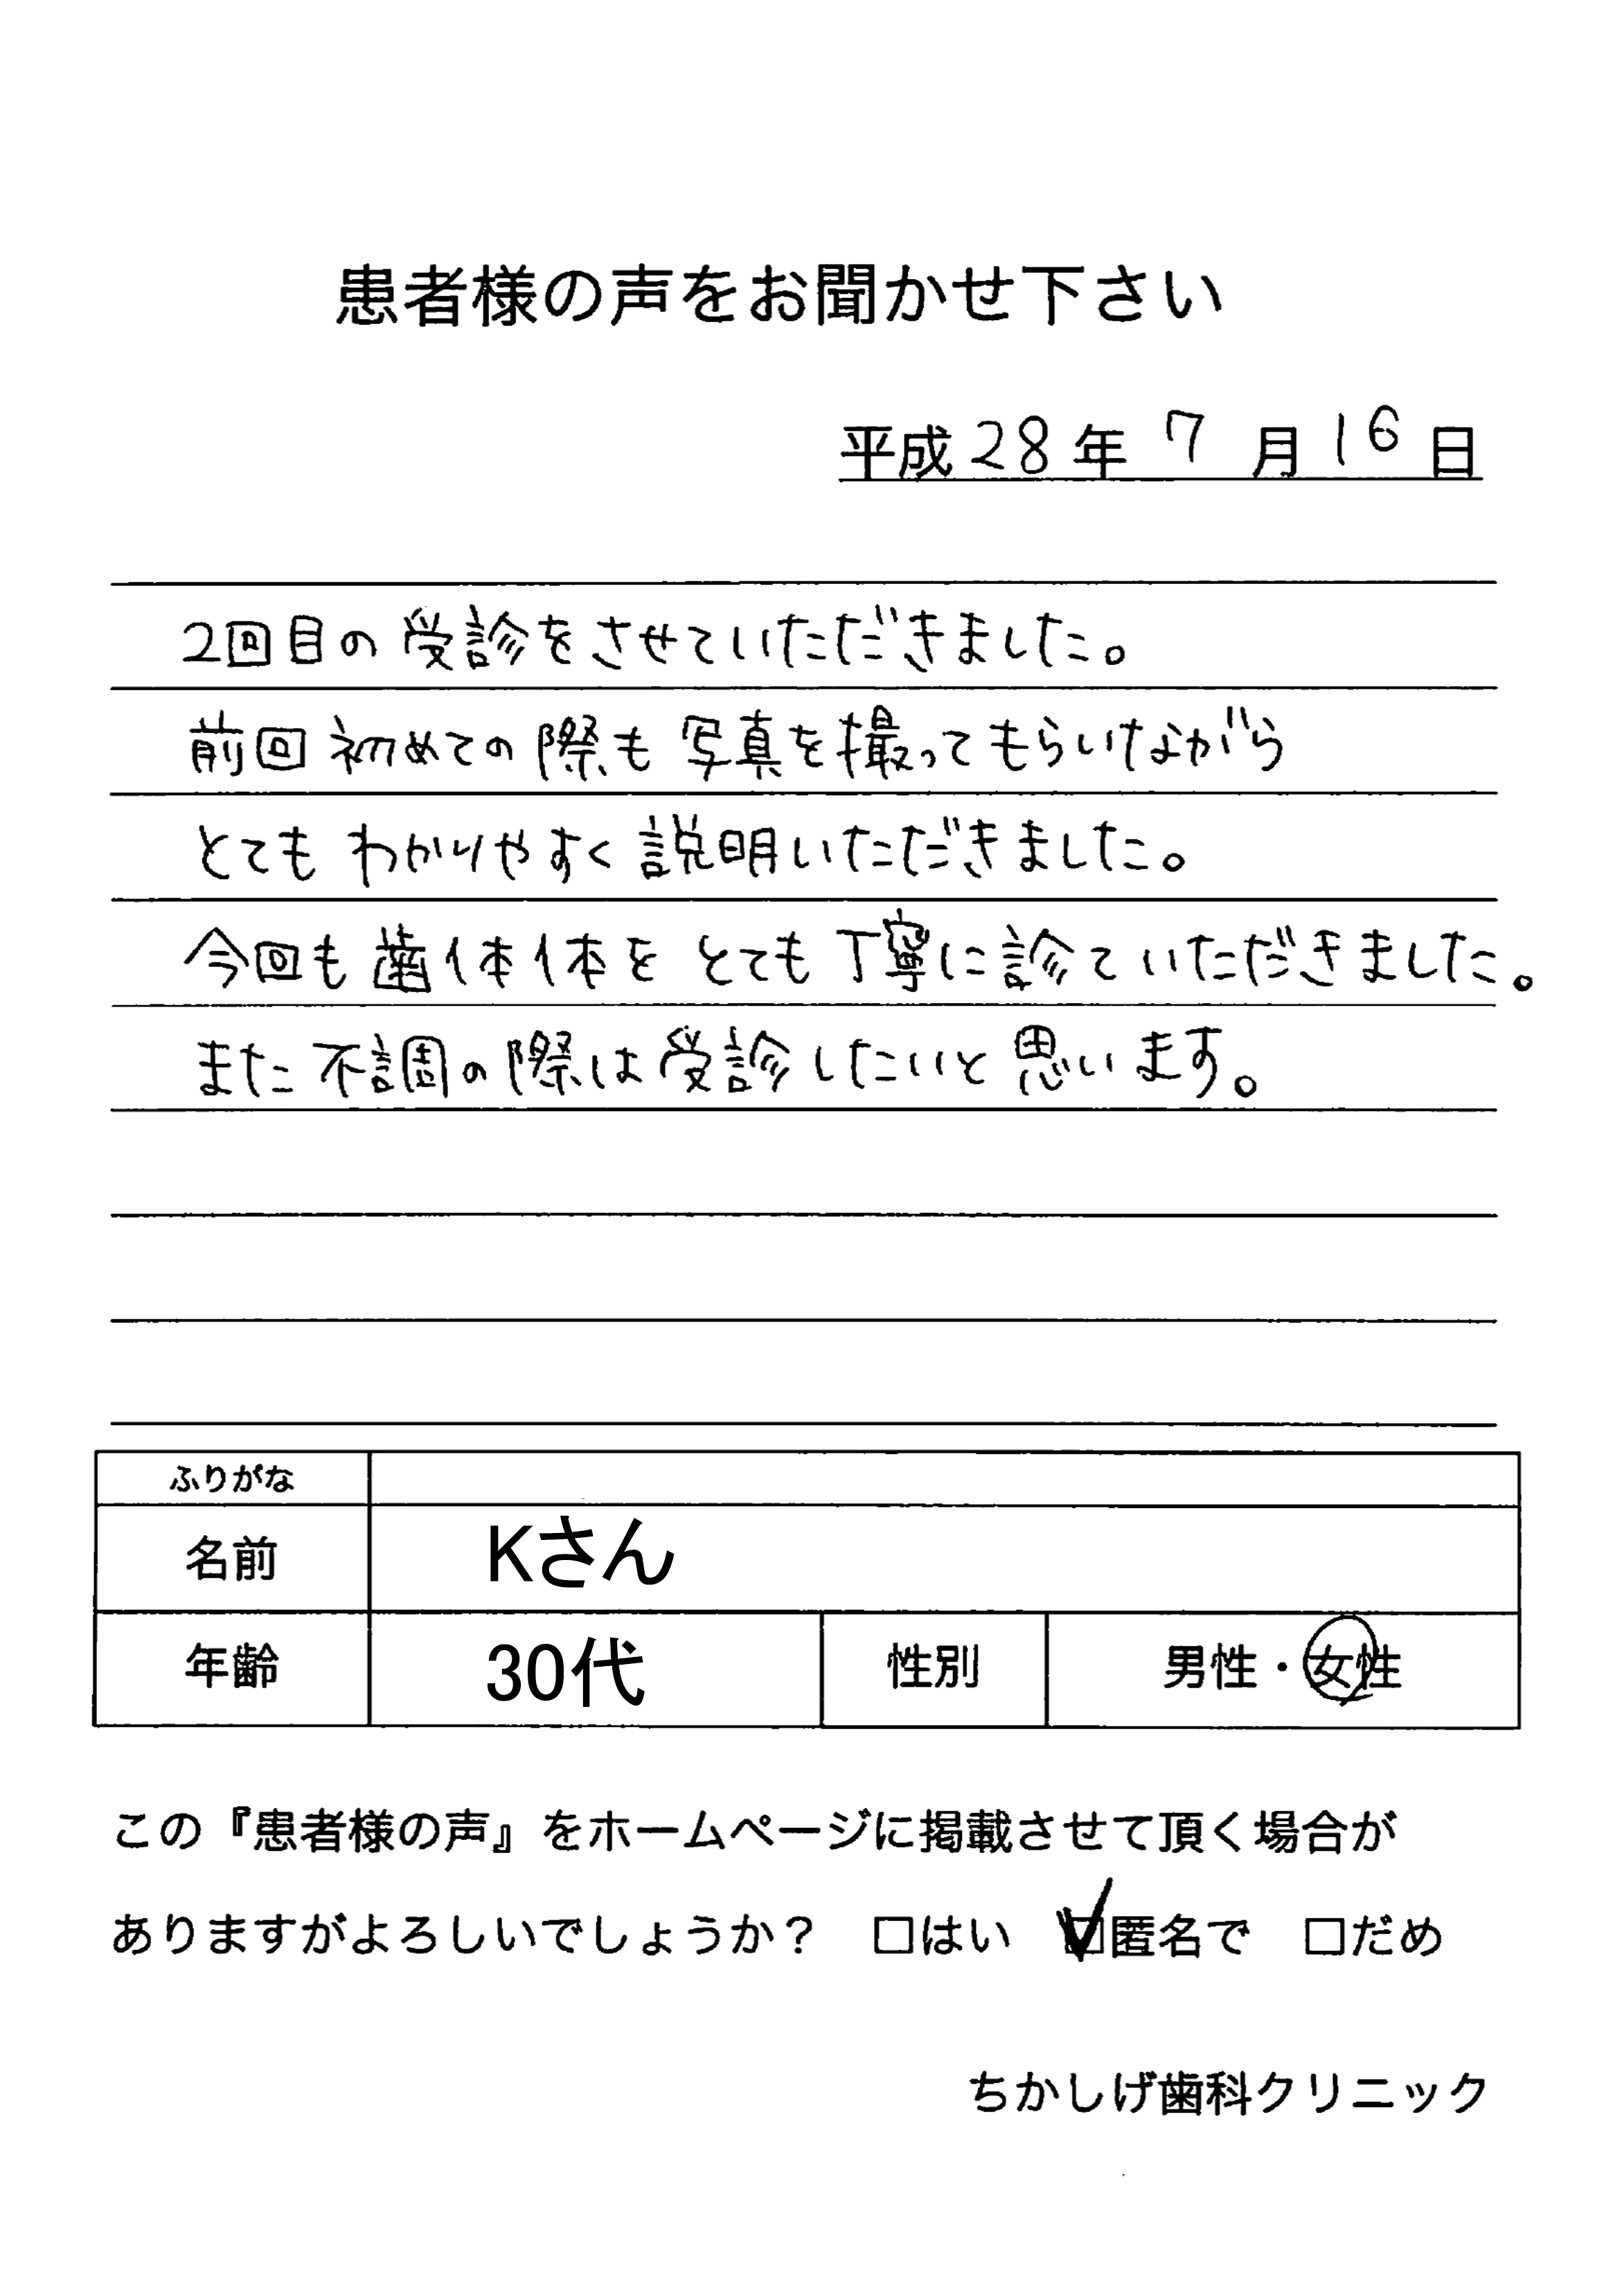 患者様の声をお聞かせ下さい
平成28年7月16日
2回目の受診をさせていただきました。
前回初めての際も写真を撮ってもらいながら
とてもわかりやすく説明いただきました。
今回も歯1本1本をとても丁寧に診ていただきました。
また不調の際は受診したいと思います。
ふりがな
名前 Kさん
年齢 30代 性別 男性・女性
この『患者様の声』をホームページに掲載させて頂く場合が
ありますがよろしいでしょうか? □はい ☑匿名で □だめ
ちかしげ歯科クリニック